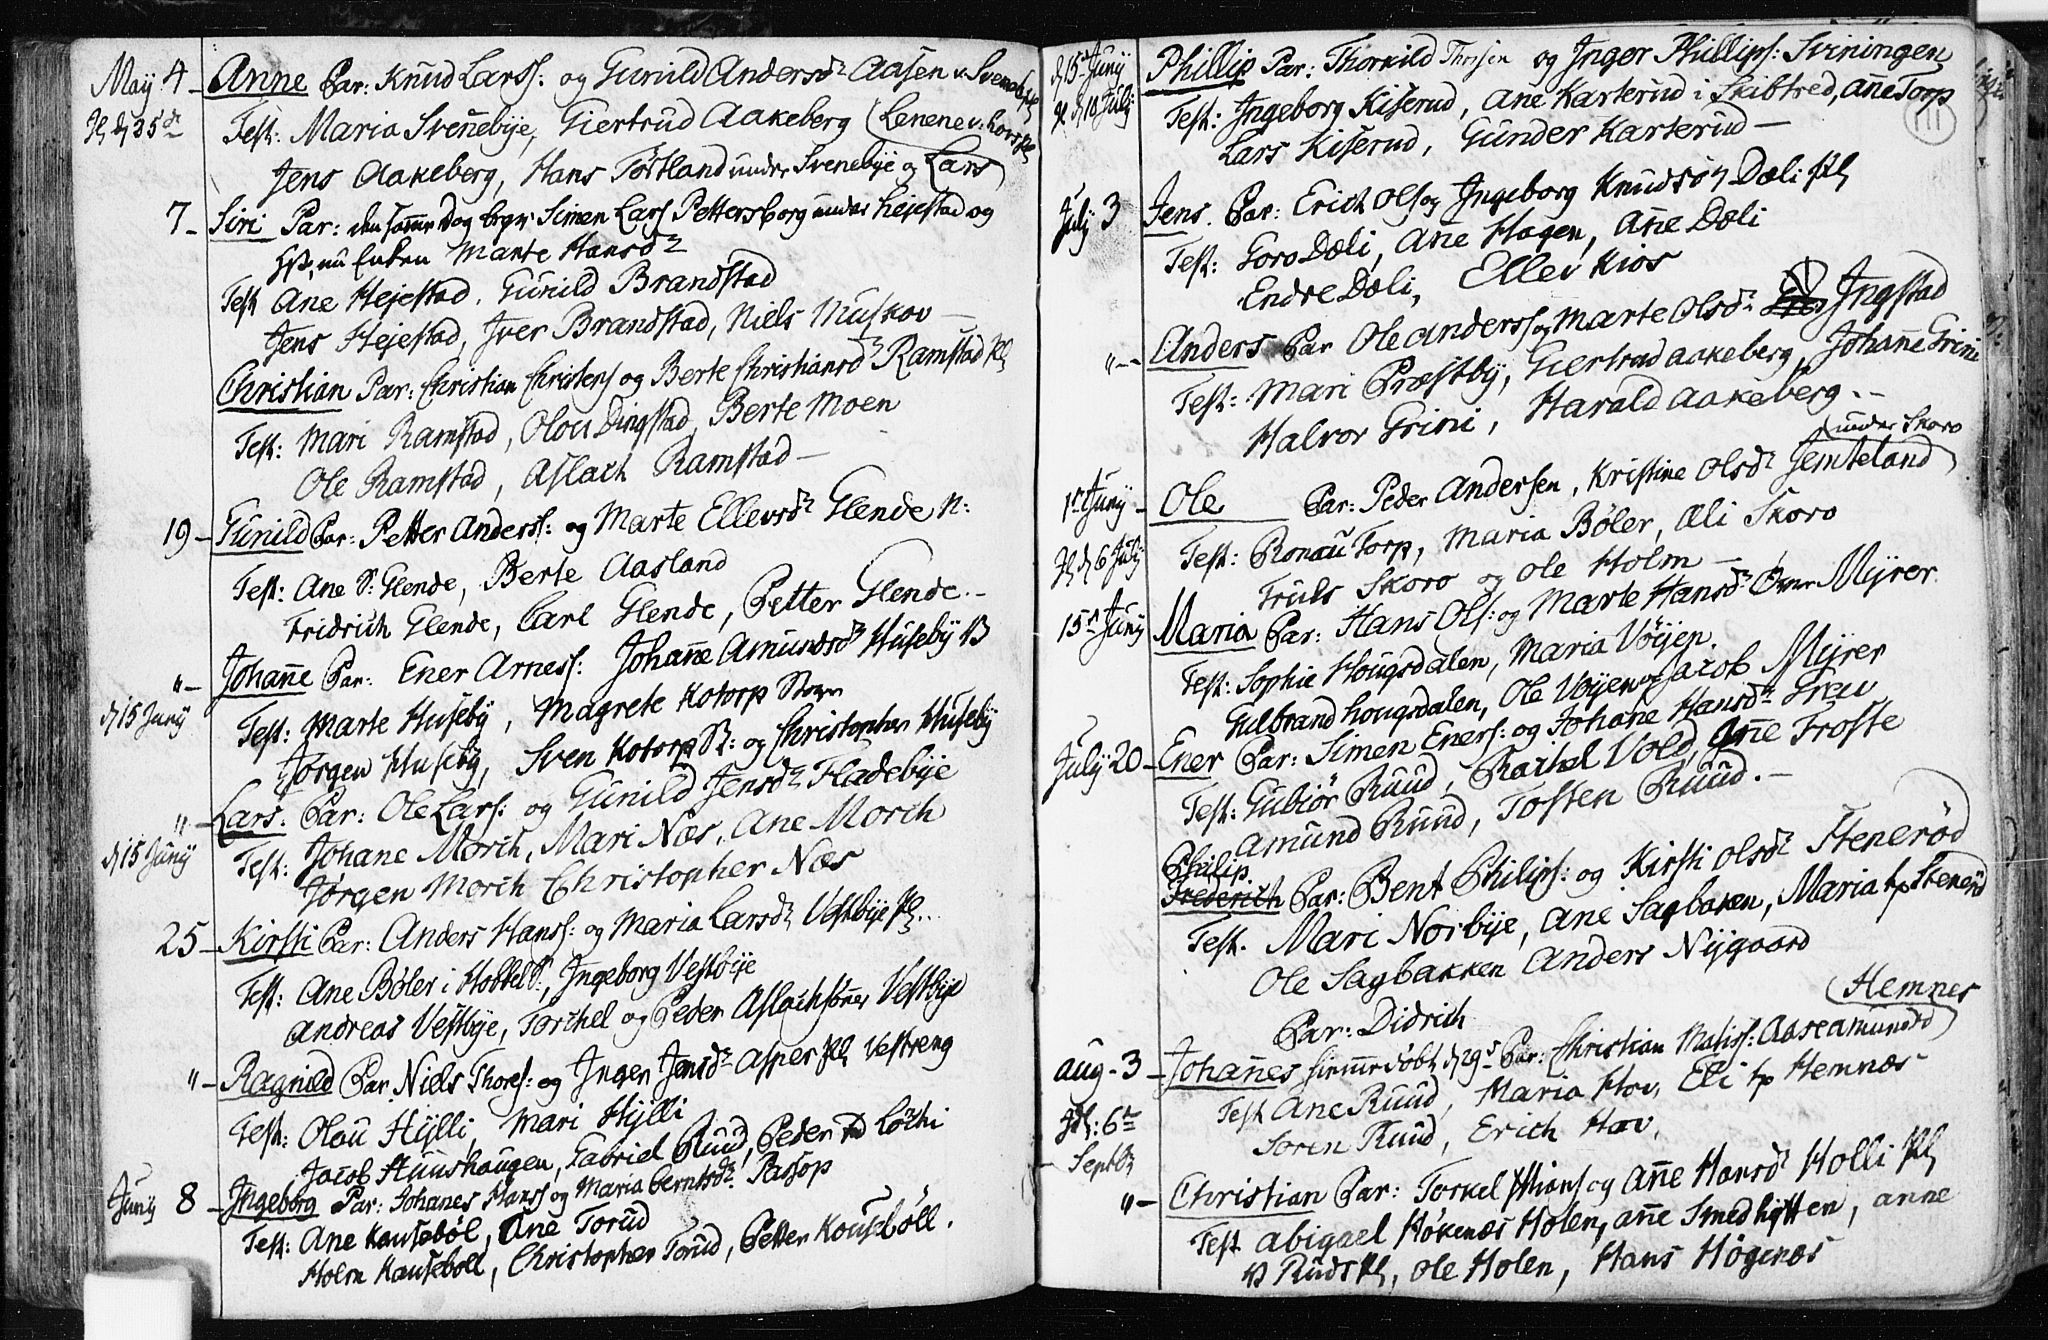 May 4 - Anne Par: Knud Larss: og Gunild Andersdr Aasen
Test: Maria Svenebye, Giertrud Aakeberg
Jens Aakeberg, Hans Tortland under Svenebye og Lars
7 - Siri Par: den samme Dag begr Simen Lars Pettersborg under Hejestad og
nu Enken Marte Hansdr
Test Ane Hejestad. Gunild Brandstad
Jens Hejestad, Jver Brandstad, Niels Muskov -
Christian Par: Christian Christens og Berte Christiansdr Ramstad Pl
Test: Mari Ramstad, Olou Dingstad, Berte Moen
Ole Ramstad, Aslach Ramstad -
19 - Gunild Par: Petter Anderss: og Marte Ellevsdr Glende N:
Test: Ane S: Glende, Berte Aasland
Fridrich Glende, Carl Glende, Petter Glende. -
" - Johanne Par: Ener Arness: Johanne Amundsdr Huseby
d 15 Juny
Test: Marte Huseby, Magrete Kotorp
Jørgen Huseby, Sven Kotorp og Christopher Huseby
" - Lars. Par: Ole Lars: og Gunild Jensdr Fladebye
d 15 Juny
Test: Johane Morch, Mari Næs, Ane Morch
Jørgen Morch Christopher Næs
25 - Kirsti Par: Anders Hanss: og Maria Larsdr Vestbye Pl
Test: Ane Bøler i Hobbel S:, Jngeborg Vestbye
Andreas Vestbye, Torchel og Peder Aslachsønner Vestbye
" - Ragnild Par Niels Thores: og Jnger Jensdr Asper Pl Vestreng
Test: Olou Hylli, Mari Hylli
Jacob Huushaugen, Gabriel Ruud, Peder Løchi
Juny 8 - Jngeborg Par: Johanes Hans og Maria Berntsdr Passop
Test: Ane Kausebøl, Ane Torud
Holm Kausebøll, Christopher Torud, Petter Kousebøll.
111
d 15 Juny Phillip Par: Thorkild og Jnger Phillips: Sviningen
d 18 July
Test: Jngeborg Kiserud, Ane Karterud i Skibtred, Anne Torp
Lars Kiserud, Gunder Karterud -
July 3 Jens. Par: Erich Ols og Jngeborg Knudsdr Dæli Pl
Test: Goro Dæli, Ane Hagen, Anne Dæli
Endre Dæli, Ellev Kios
" - Anders Par Ole Anderss og Marte Olsdr Jngstad
Test: Mari Præstby, Giertrud Aakeberg, Johanne Grini
Halvor Grini, Harald Aakeberg. -
under Skoro
1st Juny - Ole Par: Peder Andersen, Kristine Olsdr Jemteland
d 6 July
Test: Ronau Torp, Maria Bøler, Æli Skoro
Truls Skoro og Ole Holm -
15d Juny Maria Par: Hans Ols: og Marte Hansdr Myrer
Test: Sophie Hougsdalen, Maria Vøyen.
Gulbrand Hougsdalen, Ole Vøyen og Jacob Myrer
July 20 - Ener Par: Simen Eners: og Johane Hansdr Grav
Test: Gubiør Ruud, Rachel Vold, Anne Froste
Amund Ruud, Tosten Ruud. -
Philip
Frederich Par: Bent Philips: og Kirsti Olsdr Stenerød
Test. Mari Norbye, Ane Sagbaken, Maria Stenerød
Ole Sagbakken Anders Nygaard
Par: Didrich
Hemnes
Aug - 3 - Johannes hiemmedøbt d 29d Par: Christian Matiss: Aase Amundsd
6te Septbr
Test Ane Ruud, Maria Hov, Eli Hemnæs
Soren Ruud, Erich Hov.
" - Christian Par: Torkel og Anne Hansdr Holli Pl
Test Abigael Høkenæs Holen, Anne Smedhytten, Anne
Ruds Pl, Ole Holen, Hans Høgenæs